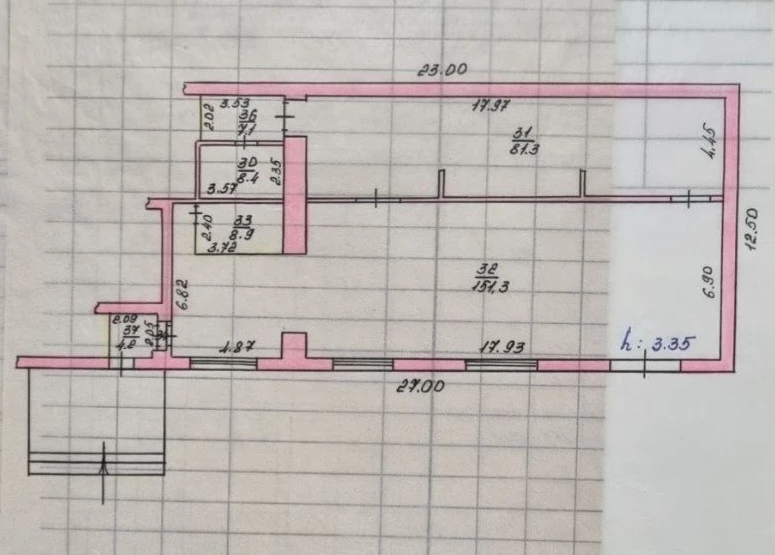 23.00
3.53
17.97
2.02
36
7.1
31
81.3
4.45
30
8.4
2.35
3.57
2.40
33
8.9
3.72
12.50
32
151.3
6.82
6.90
2.09
37
4.2
2.05
4.87
17.93
h: 3.35
27.00